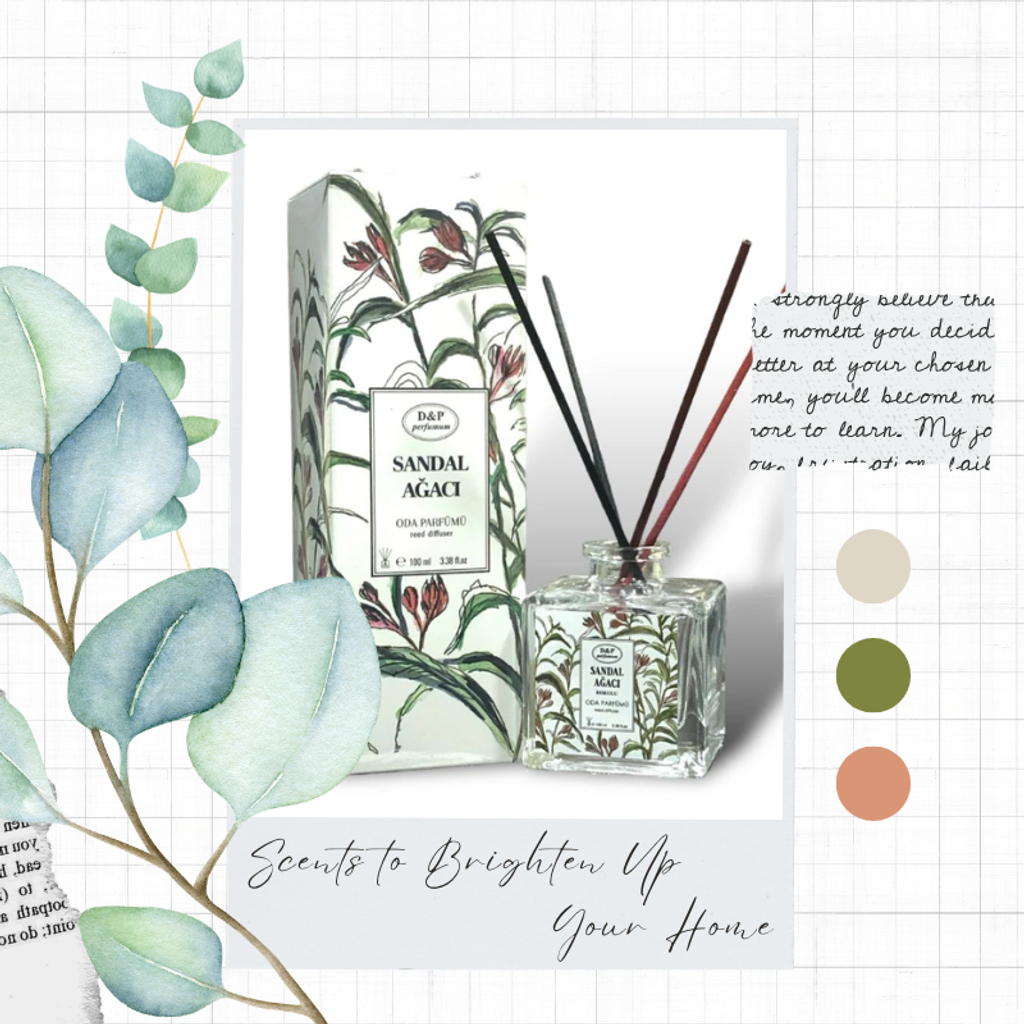 D&P
perfumum
SANDAL
AĞACI
ODA PARFÜMÜ
reed diffuser
℮ 100 ml 3.38 fl.oz
D&P
perfumum
SANDAL
AĞACI
KOKULU
ODA PARFÜMÜ
reed diffuser
℮ 100 ml 3.38 fl.oz
strongly believe tha
he moment you decid
etter at your chosen
me, you'll become m
nore to learn. My jo
Scents to Brighten Up
Your Home
you
ead,
to
ootpath
oint; do no